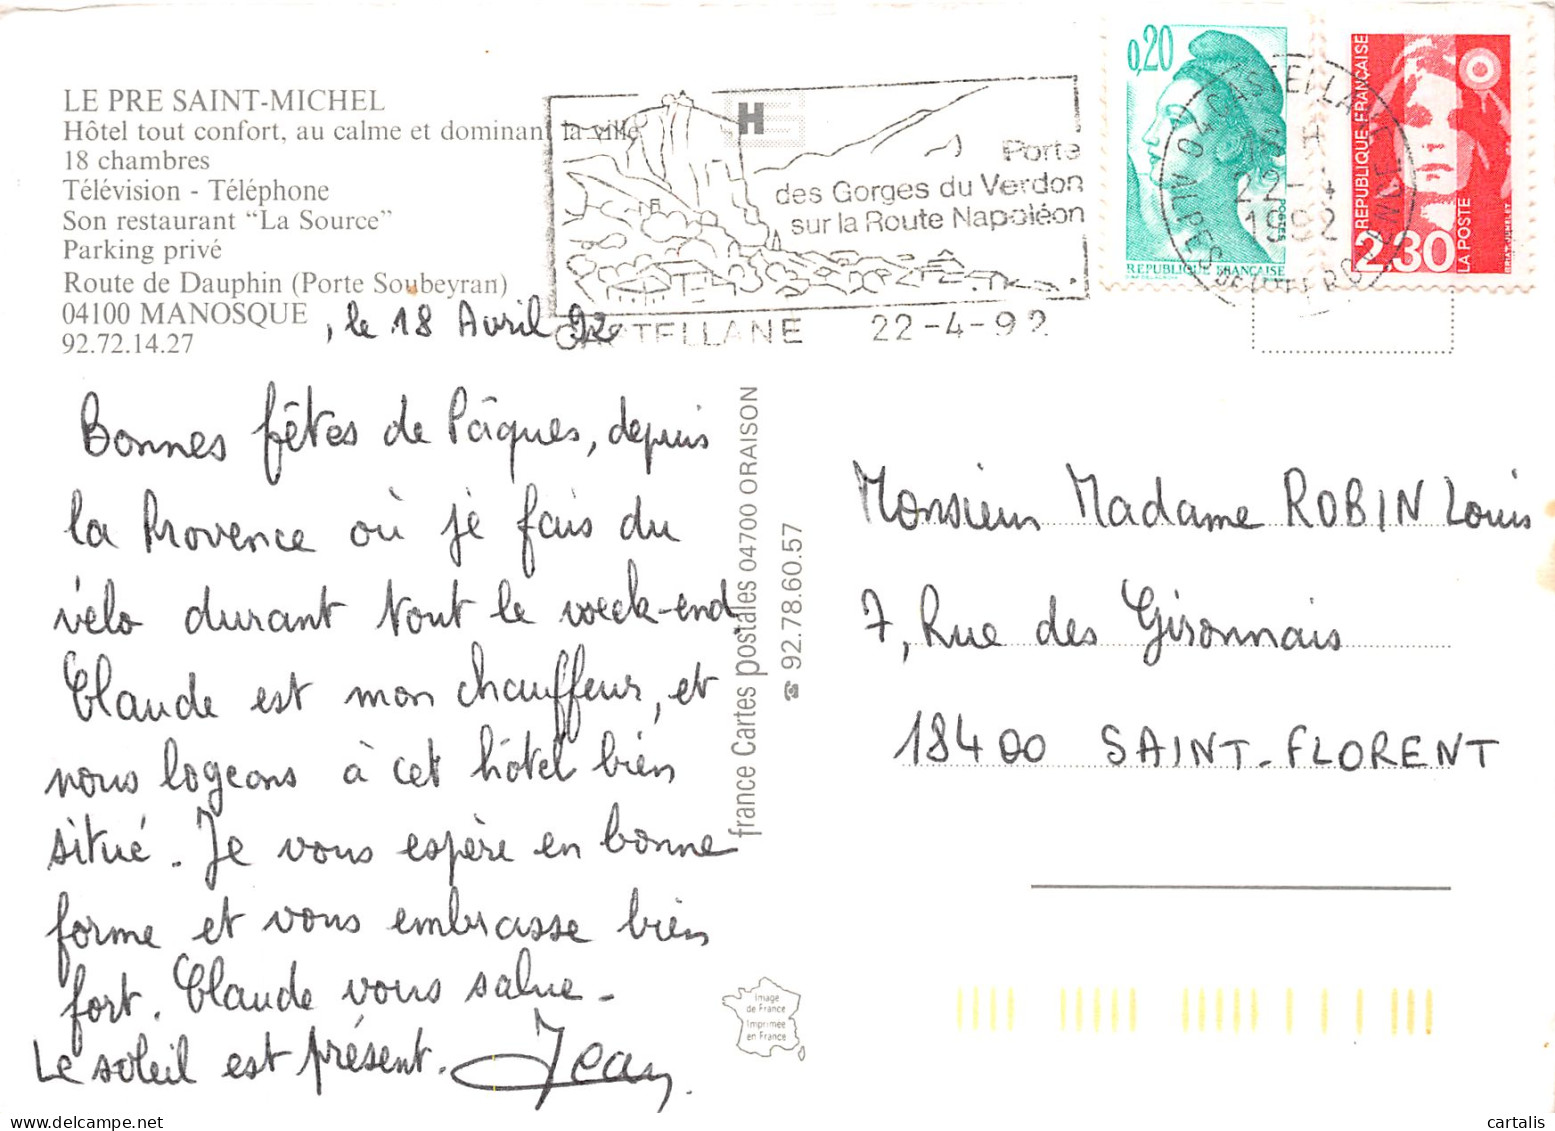 LE PRE SAINT-MICHEL
Hôtel tout confort, au calme et dominant la ville
18 chambres
Télévision - Téléphone
Son restaurant "La Source"
Parking privé
Route de Dauphin (Porte Soubeyran)
04100 MANOSQUE
92.72.14.27
, le 18 Avril 92
Bonnes fêtes de Pâques, depuis
la Provence où je fais du
vélo durant tout le week-end
Claude est mon chauffeur, et
nous logeons à cet hôtel bien
situé. Je vous espère en bonne
forme et vous embrasse bien
fort. Claude vous salue.
Le soleil est présent. Jean
H
Porte
des Gorges du Verdon
sur la Route Napoléon
CASTELLANE 22-4-92
0,20
POSTES
REPUBLIQUE FRANÇAISE
REPUBLIQUE FRANÇAISE
2,30
LA POSTE
BRIAT-JUMELET
04 CASTELLANE
16 H
22-4
1992
ALPES DE HTE PROVENCE
france Cartes postales 04700 ORAISON
☎ 92.78.60.57
Monsieur Madame ROBIN Louis
7, Rue des Gironnais
18400 SAINT-FLORENT
Image
de France
Imprimée
en France
cartalis